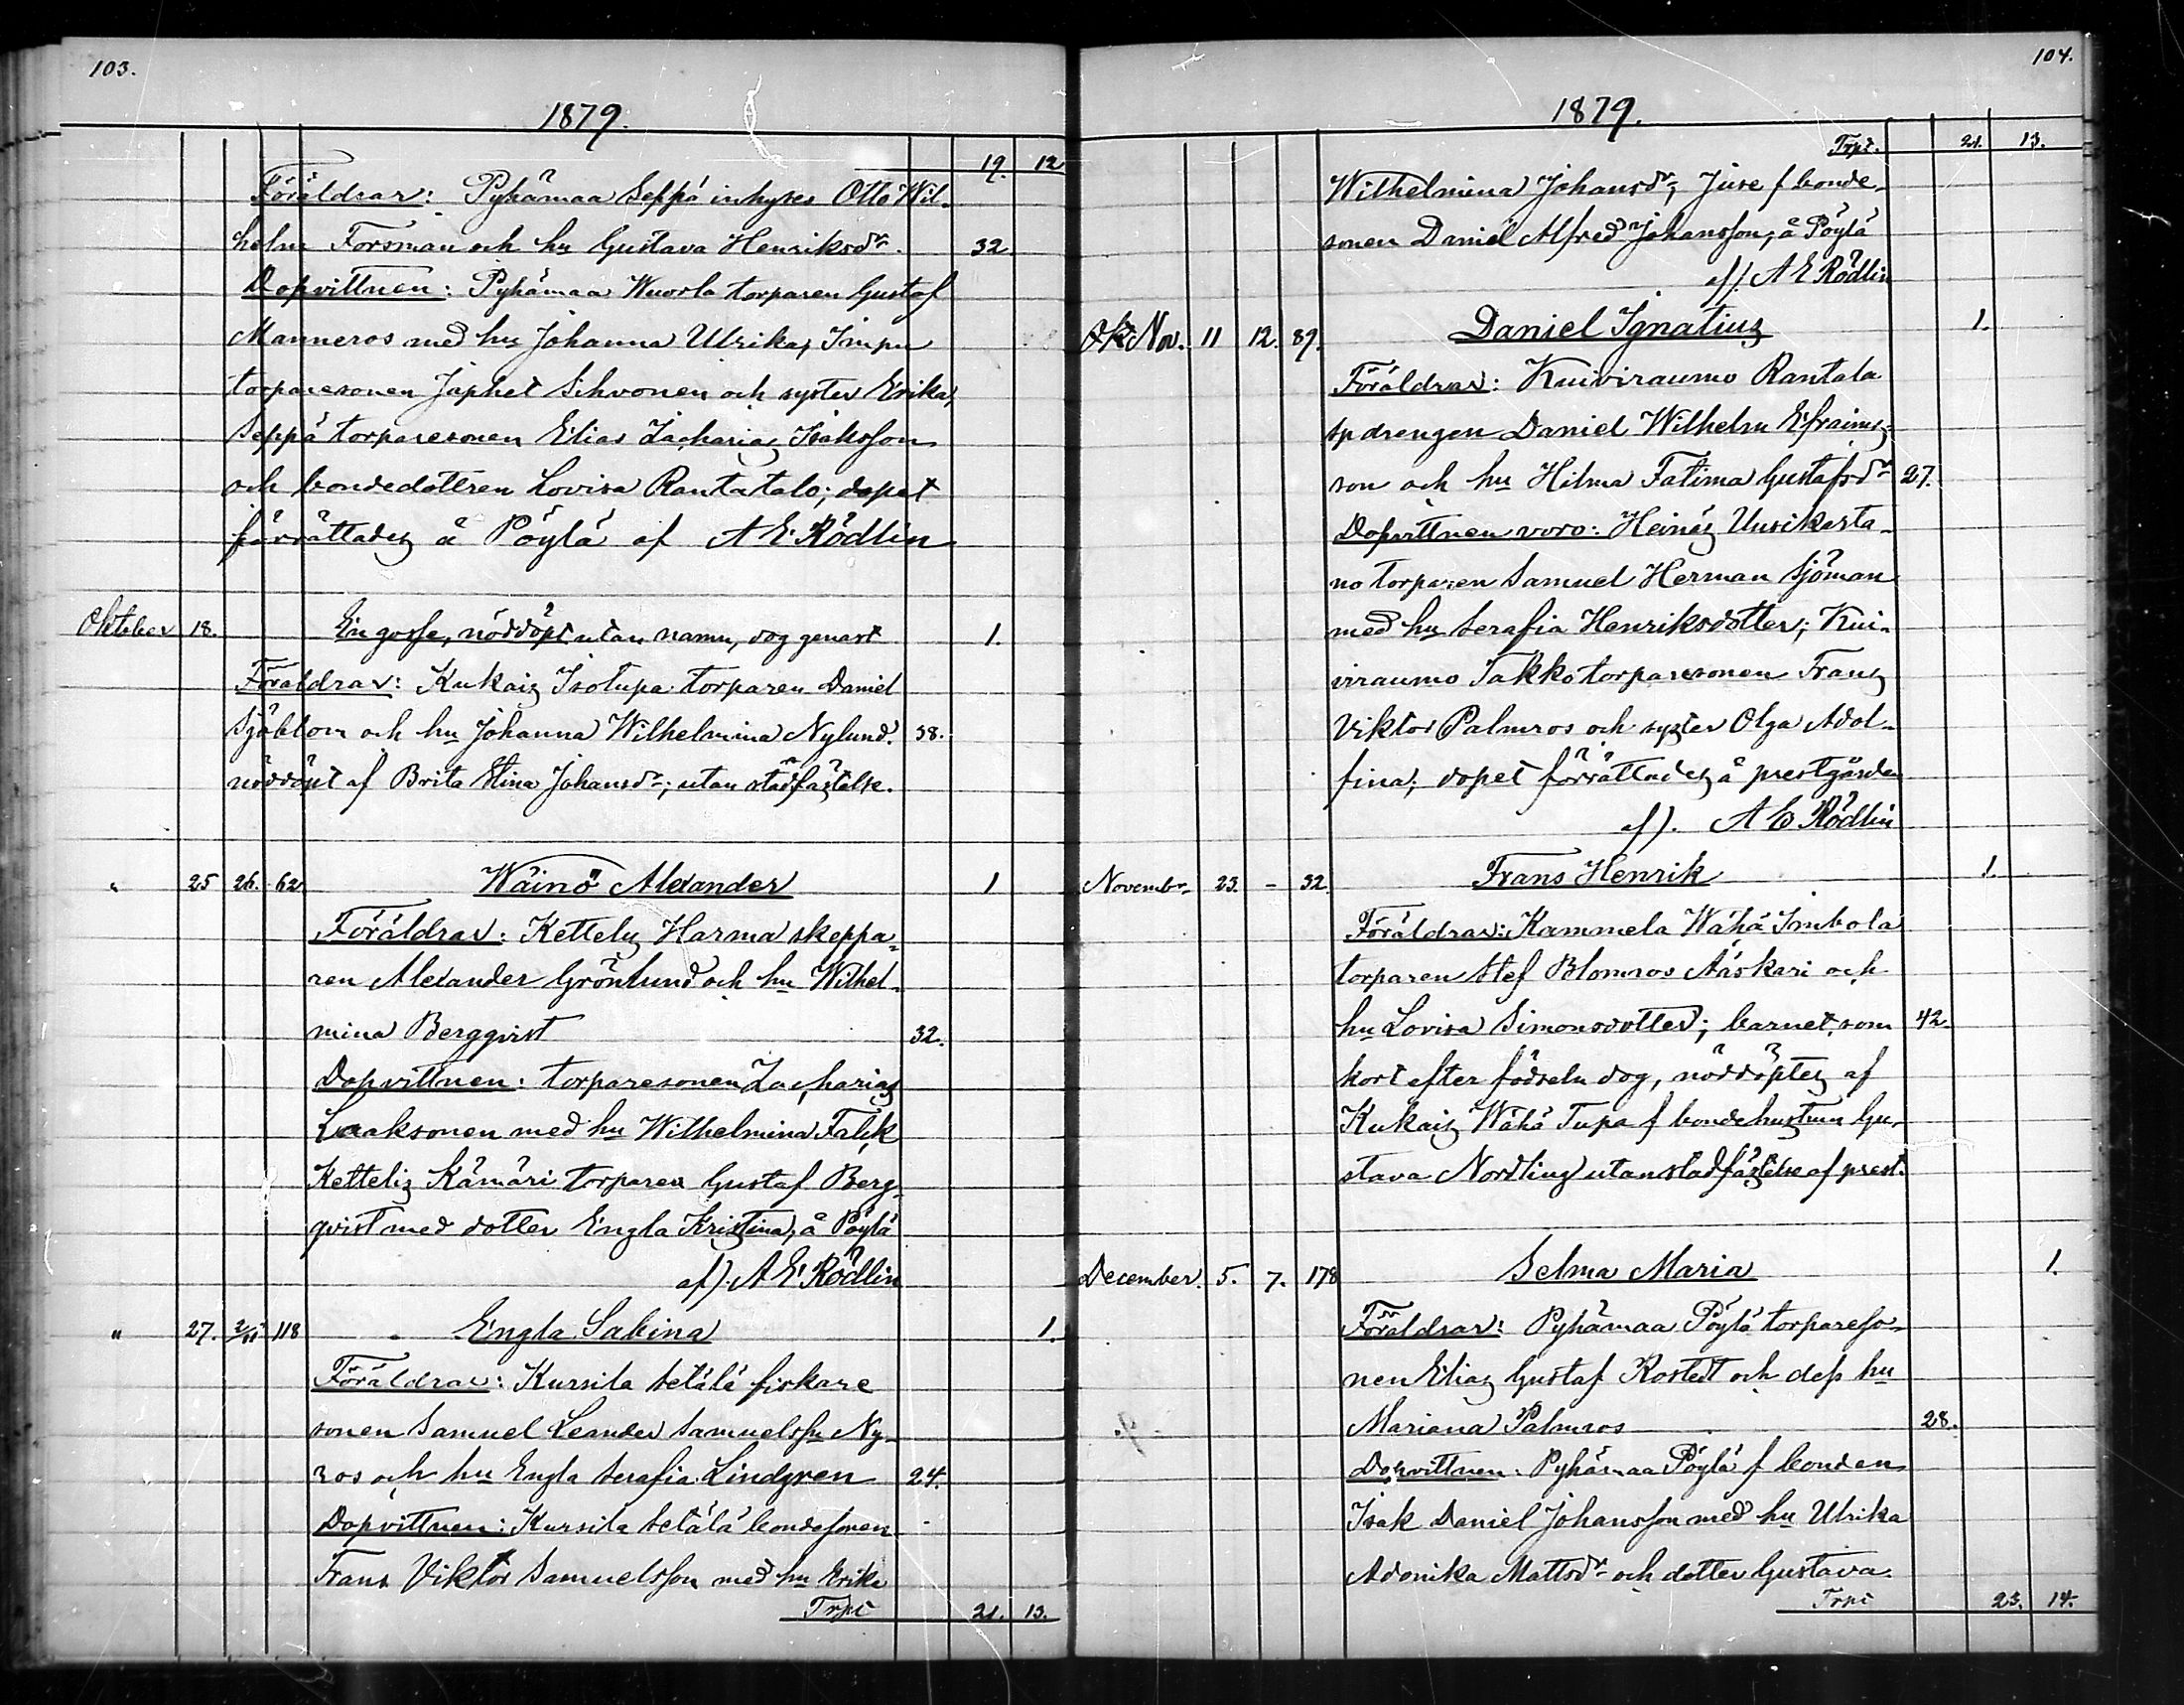 103.
1879.
19. 12
Föräldrar: Pyhämaa Seppä inhyses Otto Wil-
helm Forsman och hu Gustava Henriksdr. 32.
Dopvittnen: Pyhämaa Wuorla torparen Gustaf
Manneros med hu Johanna Ulrika, Impu
torparesonen Japhet Sihvonen och syster Erika,
Seppä torparesonen Elias Zacharias Isaksson
och bondedottren Lovisa Rantatalo; dopet
förrättades å Pöylä af A E Rödlin
Oktober 18. En gosse, nöddöpt utan namn, dog genast 1.
Föräldrar: Kukais Isotupa torparen Daniel
Sjöblom och hu Johanna Wilhelmina Nylund. 38.
nöddöpt af Brita Stina Johansdr; utan stadfästelse.
" 25 26. 62 Wäinö Alexander 1
Föräldrar: Kettelis Harma skeppa-
ren Alexander Grönlund och hu Wilhel-
mina Bergqvist 32.
Dopvittnen: torparesonen Zacharias
Laaksonen med hu Wilhelmina Falck
Kettelis Kämäri torparen Gustaf Berg-
qvist med dotter Engla Kristina, å Pöylä
af). A E Rödlin
" 27. 2/11 118 Engla Sabina 1.
Föräldrar: Kursila Setälä fiskare
sonen Samuel Leander Samuelssn Ny-
ros och hu Engla Serafia Lindgren 24.
Dopvittnen: Kursila Setälä bondesonen
Frans Viktor Samuelsson med hu Erika
Trpt 21. 13.
104.
1879.
Trpt. 21. 13.
Wilhelmina Johansdr; Juse f bonde-
sonen Daniel Alfred Johansson, å Pöylä
af). A E Rödlin
Okt Nov. 11 12. 89. Daniel Ignatius 1.
Föräldrar: Kuiviraumo Rantala
spdrengen Daniel Wilhelm Efraims-
son och hu Hilma Fatima Gustafsdr 27.
Dopvittnen voro: Heinäs Uusikarta-
no torparen Samuel Herman Sjöman
med hu Serafia Henriksdotter; Kui-
viraumo Takko torparesonen Frans
Viktor Palmros och syster Olga Adol-
fina; dopet förrättades å prestgården
af). A E Rödlin
Novembr 23. - 32. Frans Henrik 1.
Föräldrar: Kammela Wähä Imbola
torparen Stef Blomros Ääskari och
hu Lovisa Simonsdotter; barnet, som 42.
kort efter födseln dog, nöddöptes af
Kukais Wähä Tupa f bondehustrun Gu-
stava Nordling utan stadfästelse af prest.
December. 5. 7. 178 Selma Maria 1.
Föräldrar: Pyhämaa Pöylä torpareso-
nen Elias Gustaf Rostedt och dess hu
Mariana Palmros 28.
Dopvittnen: Pyhämaa Pöylä f bonden
Isak Daniel Johansson med hu Ulrika
Adonika Mattsdr och dotter Gustava.
Trpt 23. 14.